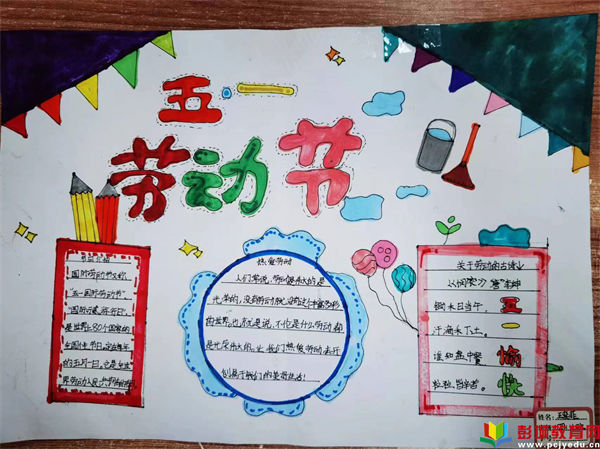 五一
劳动节
国际劳动节又称
"五一国际劳动节"
"国际示威游行日"
是世界上80个国家的
全国性节日,定在每年
的五月一日,它是全世
热爱劳动
人们常说,劳动是伟大的是
光荣的,没有劳动就没有这个丰富多彩
的世界,也就是说,不论是什么劳动都
是光荣伟大的,让我们热爱劳动去开
创属于我们的美好生活!
关于劳动的古诗
锄禾日当午,
汗滴禾下土。
谁知盘中餐
粒粒皆辛苦。
五
一
愉
快
姓名:
彭城教育网
www.pcjyedu.cn